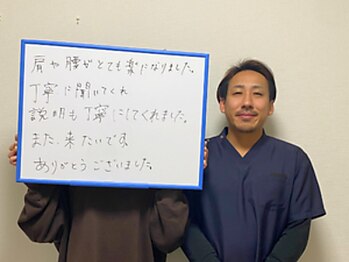 肩や腰がとても楽になりました。
丁寧に聞いてくれ
説明も丁寧にしてくれました。
また、来たいです。
ありがとうございました。